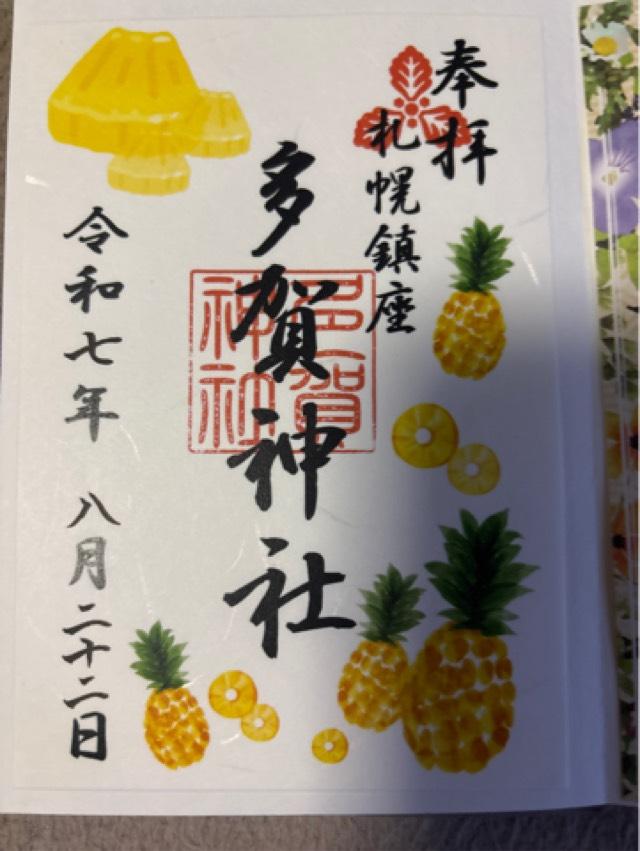 奉拝
札幌鎮座
多賀神社
多賀
神社
令和七年 八月二十二日